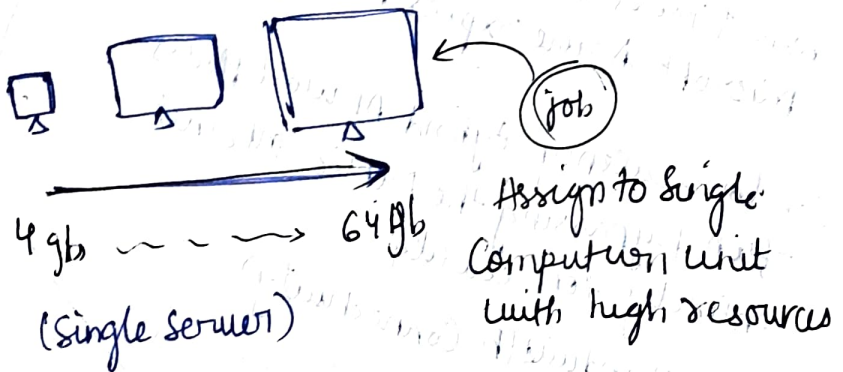 job
4 gb - - - → 64 gb
(Single server)
Assign to Single
Compution unit
with high resources